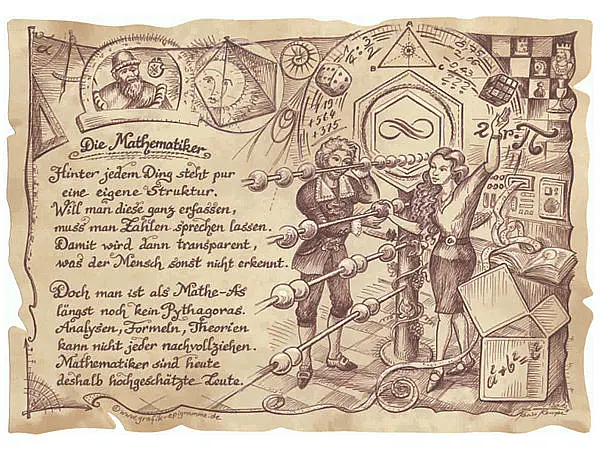 Die Mathematiker
Hinter jedem Ding steht pur
eine eigene Struktur.
Will man diese ganz erfassen,
muss man Zahlen sprechen lassen.
Damit wird dann transparent,
was der Mensch sonst nicht erkennt.
Doch man ist als Mathe-As
längst noch kein Pythagoras.
Analysen, Formeln, Theorien
kann nicht jeder nachvollziehen.
Mathematiker sind heute
deshalb hochgeschätzte Leute.
©www.grafik-epigramme.de
2πrπ
a²+b²=